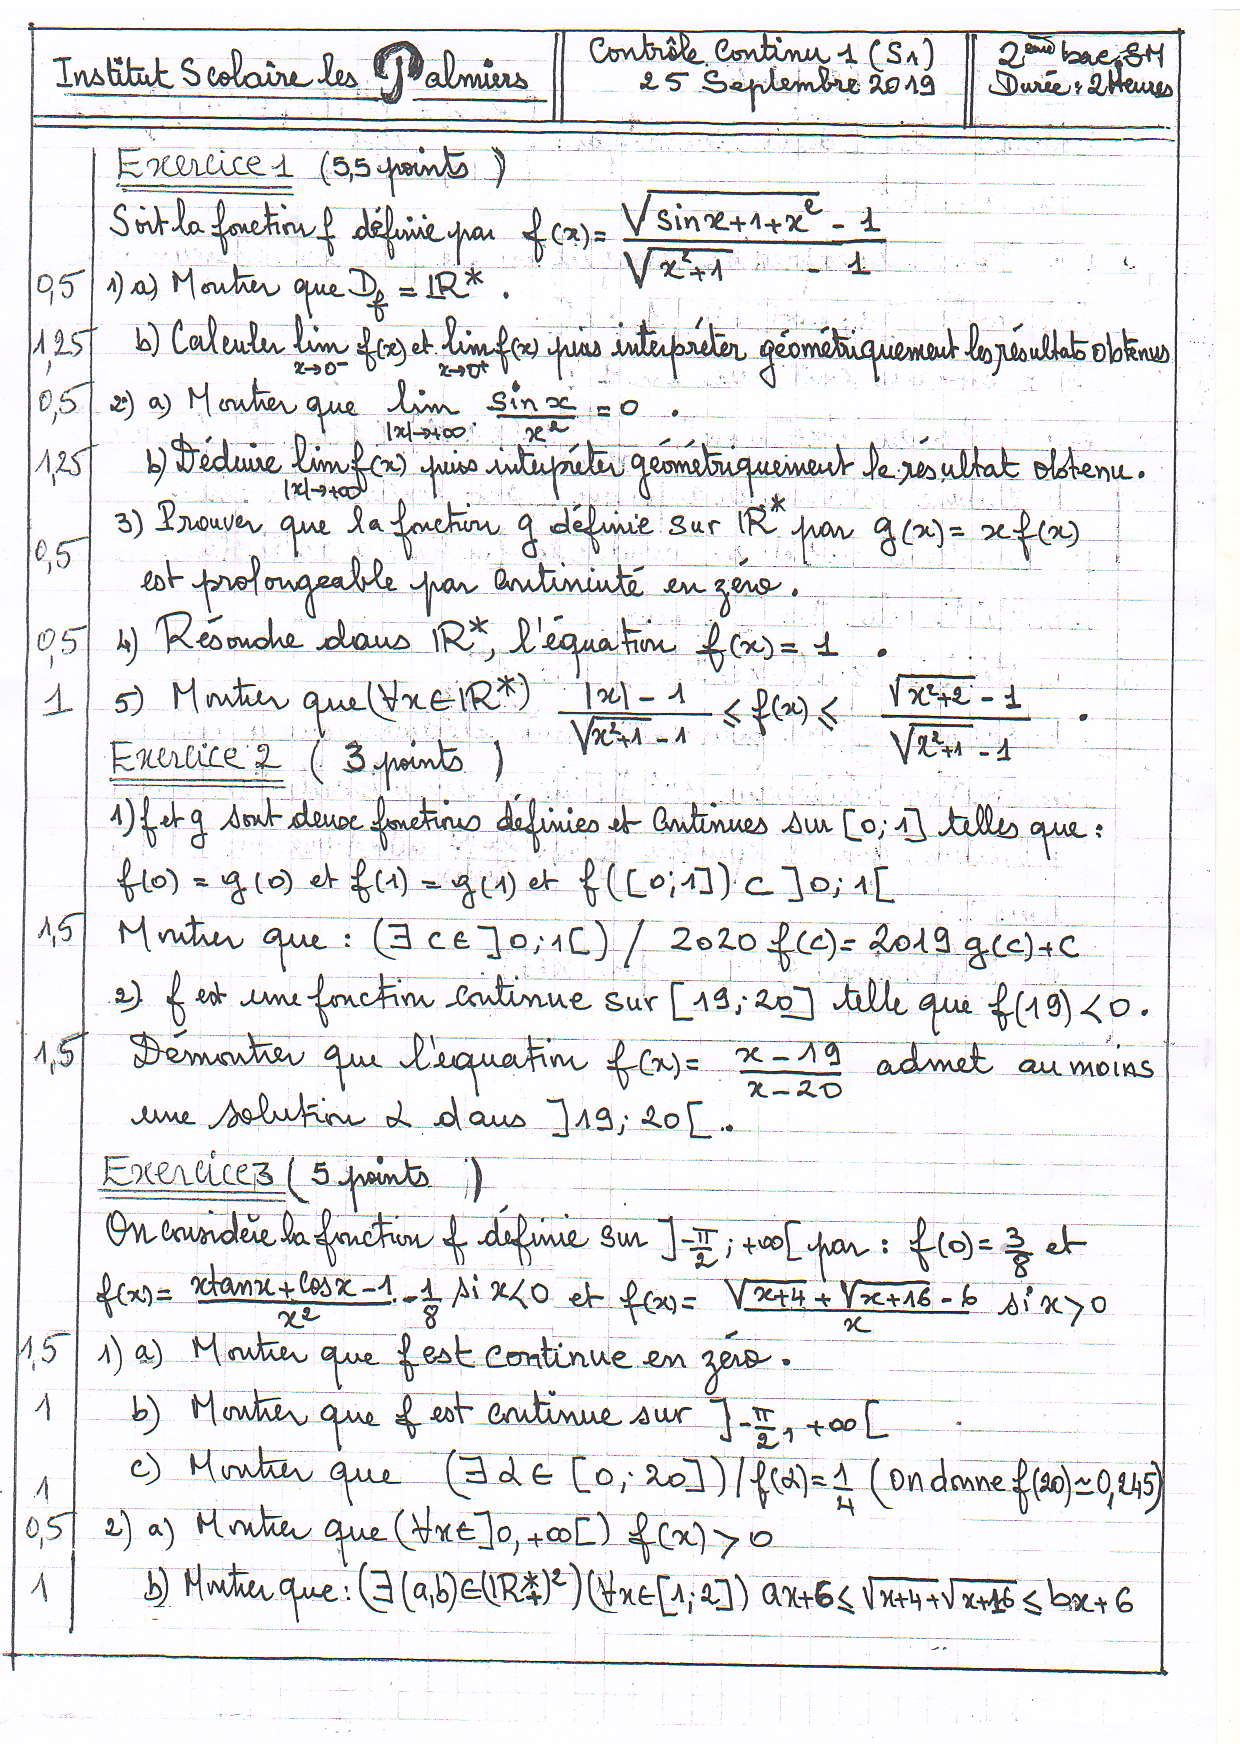 Institut Scolaire les Palmiers
Contrôle Continu 1 (S1)
25 Septembre 2019
2ème bac SM
Durée : 2 Heures
Exercice 1 (5,5 points )
Soit la fonction f définie par f(x) = (√(sinx+1+x²) - 1) / (√(x²+1) - 1)
0,5 1) a) Montrer que Df = IR* .
1,25 b) Calculer lim x→0⁻ f(x) et lim x→0⁺ f(x) puis interpréter géométriquement les résultats obtenus
0,5 2) a) Montrer que lim |x|→+∞ sin x / x² = 0 .
1,25 b) Déduire lim |x|→+∞ f(x) puis interpréter géométriquement le résultat obtenu.
3) Prouver que la fonction g définie sur IR* par g(x) = x f(x)
0,5 est prolongeable par continuité en zéro.
0,5 4) Résoudre dans IR*, l'équation f(x) = 1 .
1 5) Montrer que (∀x∈IR*) (|x| - 1) / (√(x²+1) - 1) ≤ f(x) ≤ (√(x²+2) - 1) / (√(x²+1) - 1) .
Exercice 2 ( 3 points )
1) f et g sont deux fonctions définies et continues sur [0;1] telles que :
f(0) = g(0) et f(1) = g(1) et f([0;1]) ⊂ ]0;1[
1,5 Montrer que : (∃ c ∈ ]0;1[) / 2020 f(c) = 2019 g(c) + c
2) f est une fonction continue sur [19;20] telle que f(19) < 0 .
1,5 Démontrer que l'équation f(x) = (x - 19) / (x - 20) admet au moins
une solution α dans ]19;20[ .
Exercice 3 ( 5 points )
On considère la fonction f définie sur ]-π/2 ; +∞[ par : f(0) = 3/8 et
f(x) = (xtanx + cosx - 1) / x² - 1/8 si x<0 et f(x) = (√(x+4) + √(x+16) - 6) / x si x>0
1,5 1) a) Montrer que f est continue en zéro.
1 b) Montrer que f est continue sur ]-π/2, +∞[
1 c) Montrer que (∃ α ∈ [0;20]) / f(α) = 1/4 (On donne f(20) ≃ 0,245)
0,5 2) a) Montrer que (∀x∈]0,+∞[) f(x) > 0
1 b) Montrer que : (∃(a,b)∈(IR*+)²)(∀x∈[1;2]) ax+6 ≤ √(x+4) + √(x+16) ≤ bx+6